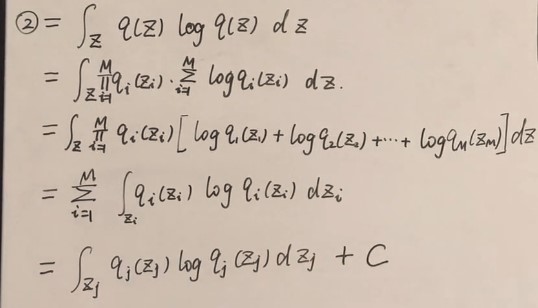 ② = ∫_Z q(Z) log q(Z) dZ
= ∫_Z ∏_{i=1}^{M} q_i(Z_i) · ∑_{i=1}^{M} log q_i(Z_i) dZ.
= ∫_Z ∏_{i=1}^{M} q_i(Z_i) [log q_1(Z_1) + log q_2(Z_2) + ··· + log q_M(Z_M)] dZ
= ∑_{i=1}^{M} ∫_{Z_i} q_i(Z_i) log q_i(Z_i) dZ_i
= ∫_{Z_j} q_j(Z_j) log q_j(Z_j) dZ_j + C